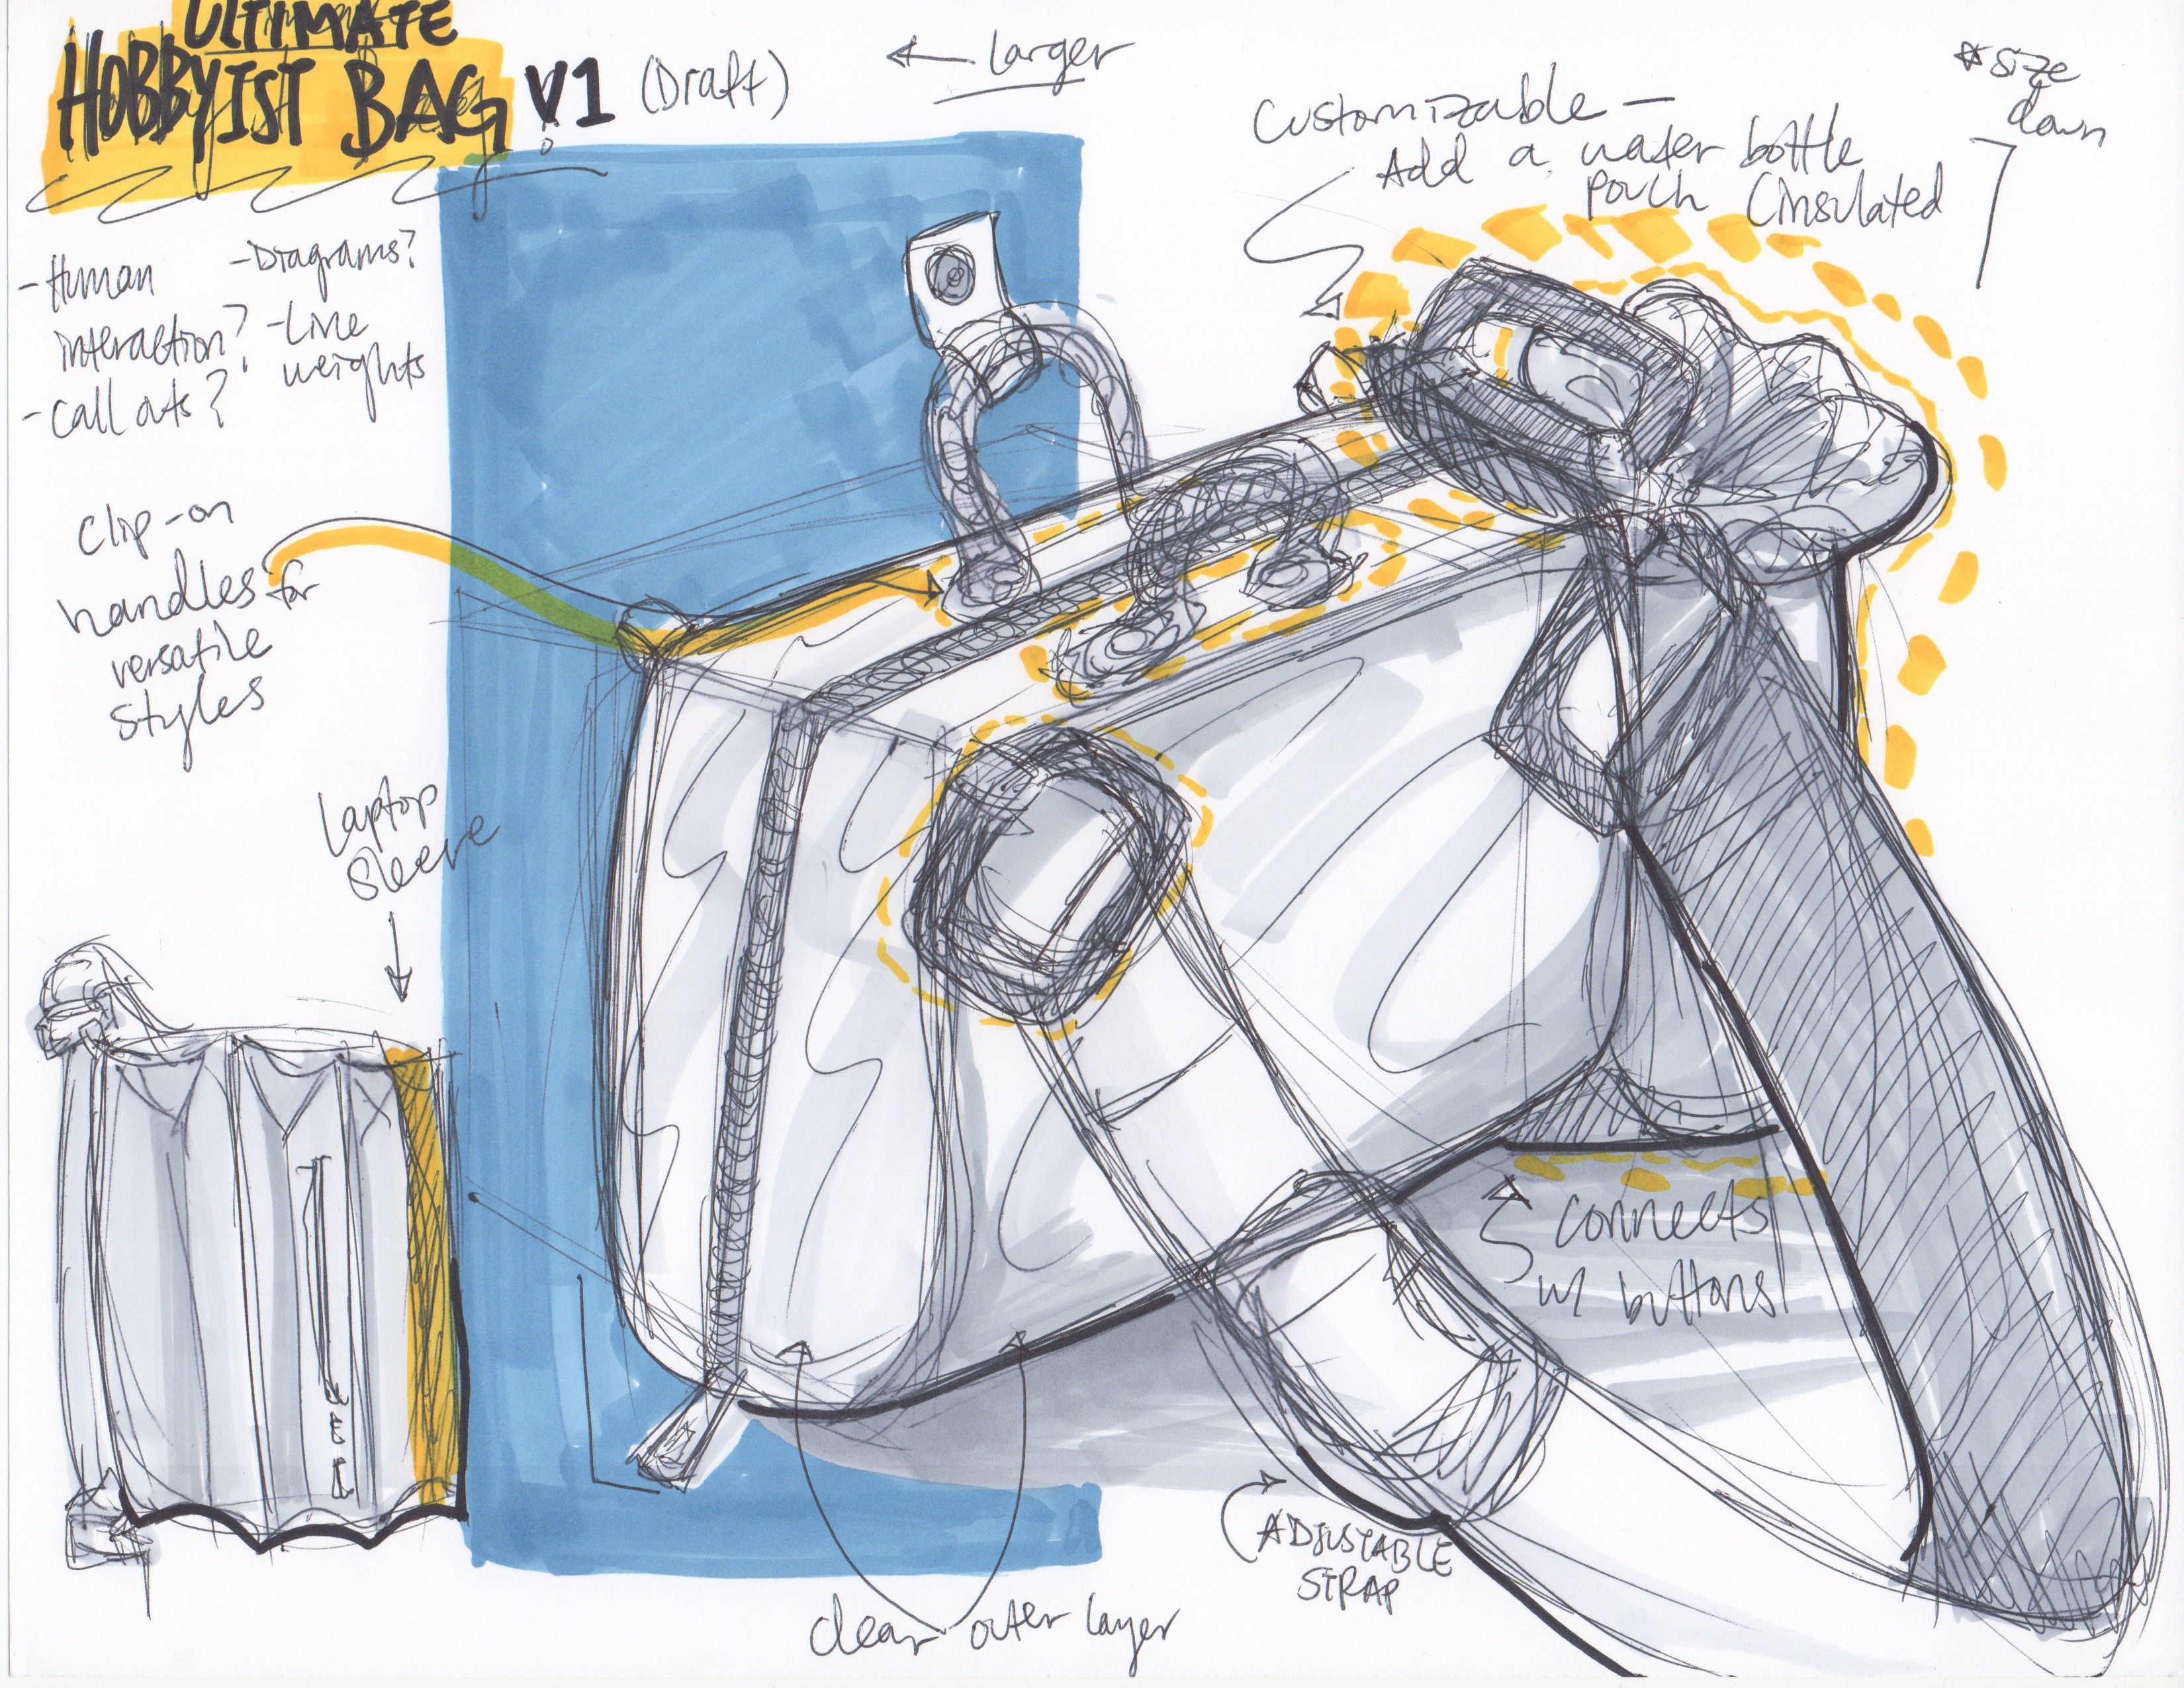 ULTIMATE
HOBBYIST BAG V1 (Draft)
← Larger
* size
down
Customizable —
Add a water bottle
pouch (insulated
- Human
interaction?
- Call outs?
- Diagrams?
- Line
weights
Clip-on
handles for
versatile
styles
Laptop
Sleeve
connects
w/ buttons
ADJUSTABLE
STRAP
clear outer layer